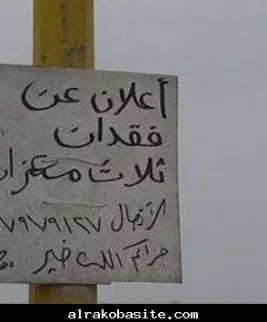 أعلان عن
فقدان
ثلاث معزات
الأتصال ٧٩٧٩١٢٧
جزاكم الله خير
alrakobasite.com